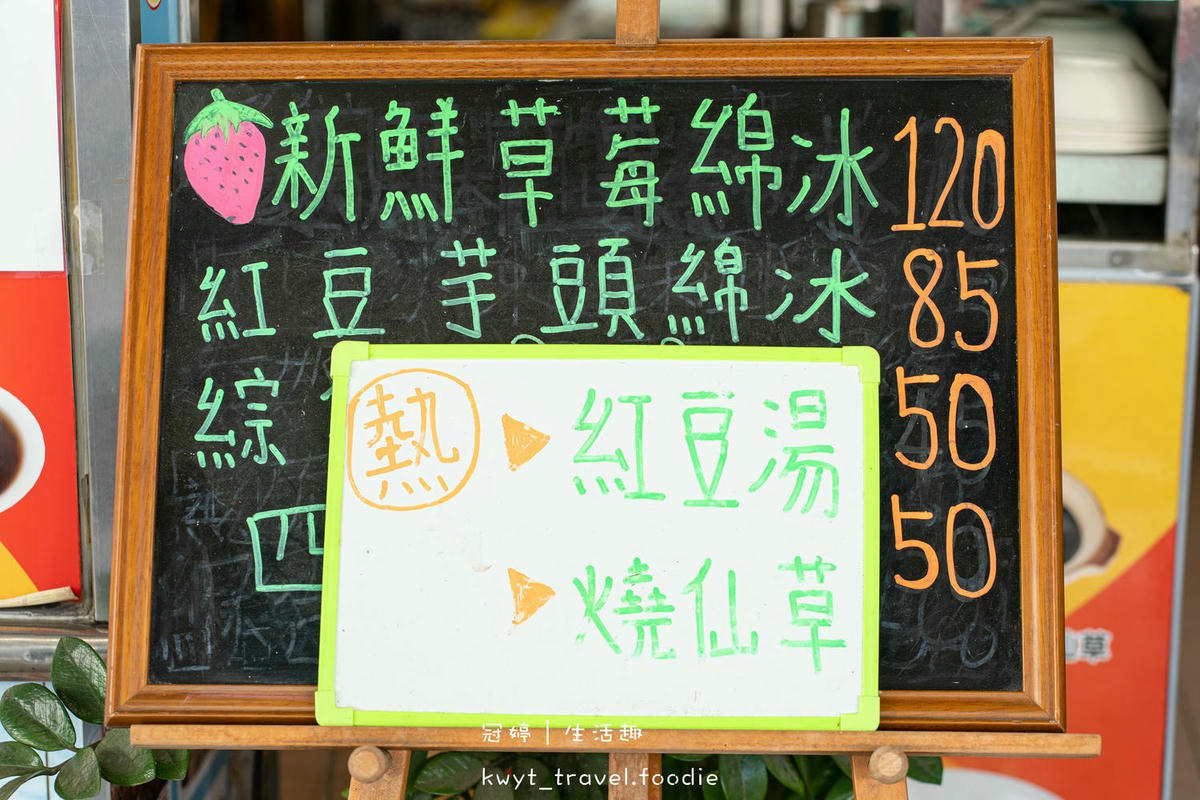 新鮮草莓綿冰 120
紅豆芋頭綿冰 85
綜 50
四 50
熱 ▶ 紅豆湯
▶ 燒仙草
冠婷｜生活趣
kwyt_travel.foodie
草